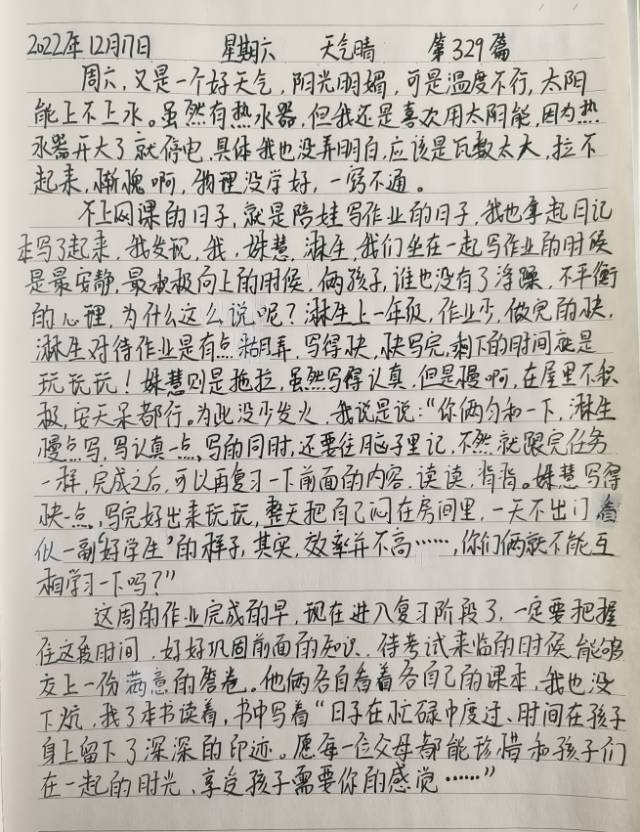 2022年12月17日 星期六 天气晴 第329篇
周六,又是一个好天气,阳光明媚,可是温度不行,太阳
能上不上水。虽然有热水器,但我还是喜欢用太阳能,因为热
水器开大了就停电,具体我也没弄明白,应该是瓦数太大,拉不
起来,惭愧啊,物理没学好,一窍不通。
不上网课的日子,就是陪娃写作业的日子,我也拿起日记
本写了起来,我发现,我,姝慧,淋生,我们坐在一起写作业的时候
是最安静,最积极向上的时候,俩孩子,谁也没有了浮躁,不平衡
的心理,为什么这么说呢?淋生上一年级,作业少,做完的快,
淋生对待作业是有点糊弄,写得快,快写完,剩下的时间就是
玩玩玩!姝慧则是拖拉,虽然写得认真,但是慢啊,在屋里不积
极,安天呆都行。为此没少发火,我说是说:“你俩匀和一下,淋生
慢点写,写认真一点,写的同时,还要往脑子里记,不然就跟完任务
一样,完成之后,可以再复习一下前面的内容,读读,背背。姝慧写得
快一点,写完好出来玩玩,整天把自己闷在房间里,一天不出门看
似一副“好学生”的样子,其实,效率并不高……,你们俩就不能互
相学习一下吗?”
这周的作业完成的早,现在进入复习阶段了,一定要把握
住这段时间,好好巩固前面的知识,待考试来临的时候,能够
交上一份满意的答卷。他俩各自看着各自己的课本,我也没
下炕,找了本书读着,书中写着“日子在忙碌中度过、时间在孩子
身上留下了深深的印迹。愿每一位父母都能珍惜和孩子们
在一起的时光,享受孩子需要你的感觉……”